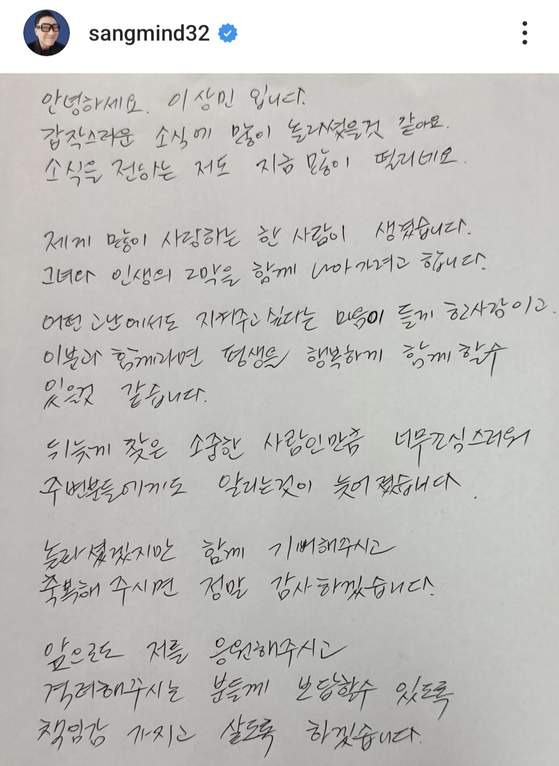 sangmind32
안녕하세요. 이상민 입니다.
갑작스라운 소식에 많이 놀라셨을것 같아요.
소식을 전하는 저도 지금 많이 떨리네요.
제게 많이 사랑하는 한 사람이 생겼습니다.
그녀와 인생의 2막을 함께 나아가려고 합니다.
어떤 고난에서도 지켜주고싶다는 마음이 들게 한사람이고.
이분과 함께라면 평생을 행복하게 함께 할수
있을것 같습니다.
뒤늦게 찾은 소중한 사람인만큼 너무조심스러워
주변분들에게도 알리는것이 늦어졌습니다.
놀라셨겠지만 함께 기뻐해주시고
축복해 주시면 정말 감사하겠습니다.
앞으로도 저를 응원해주시고
격려해주시는 분들께 보답할수 있도록
책임감 가지고 살도록 하겠습니다.